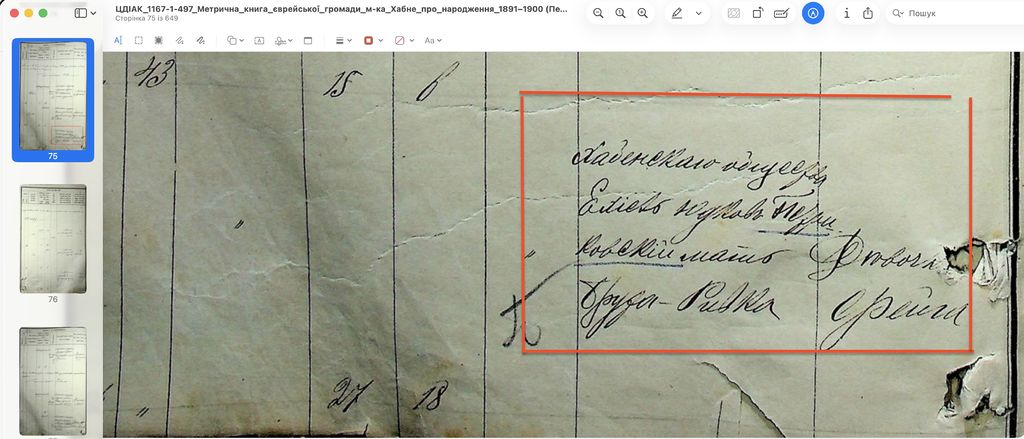 ЦДІАК_1167-1-497_Метрична_книга_єврейської_громади_м-ка_Хабне_про_народження_1891–1900 (Пе...
Сторінка 75 із 649
Пошук
75
76
43 15 6
Хабенскаго общества
Елiевъ Ицковъ Петри
ковскiй мать Дѣвочка
Груфа-Ривка Фейга
27 18